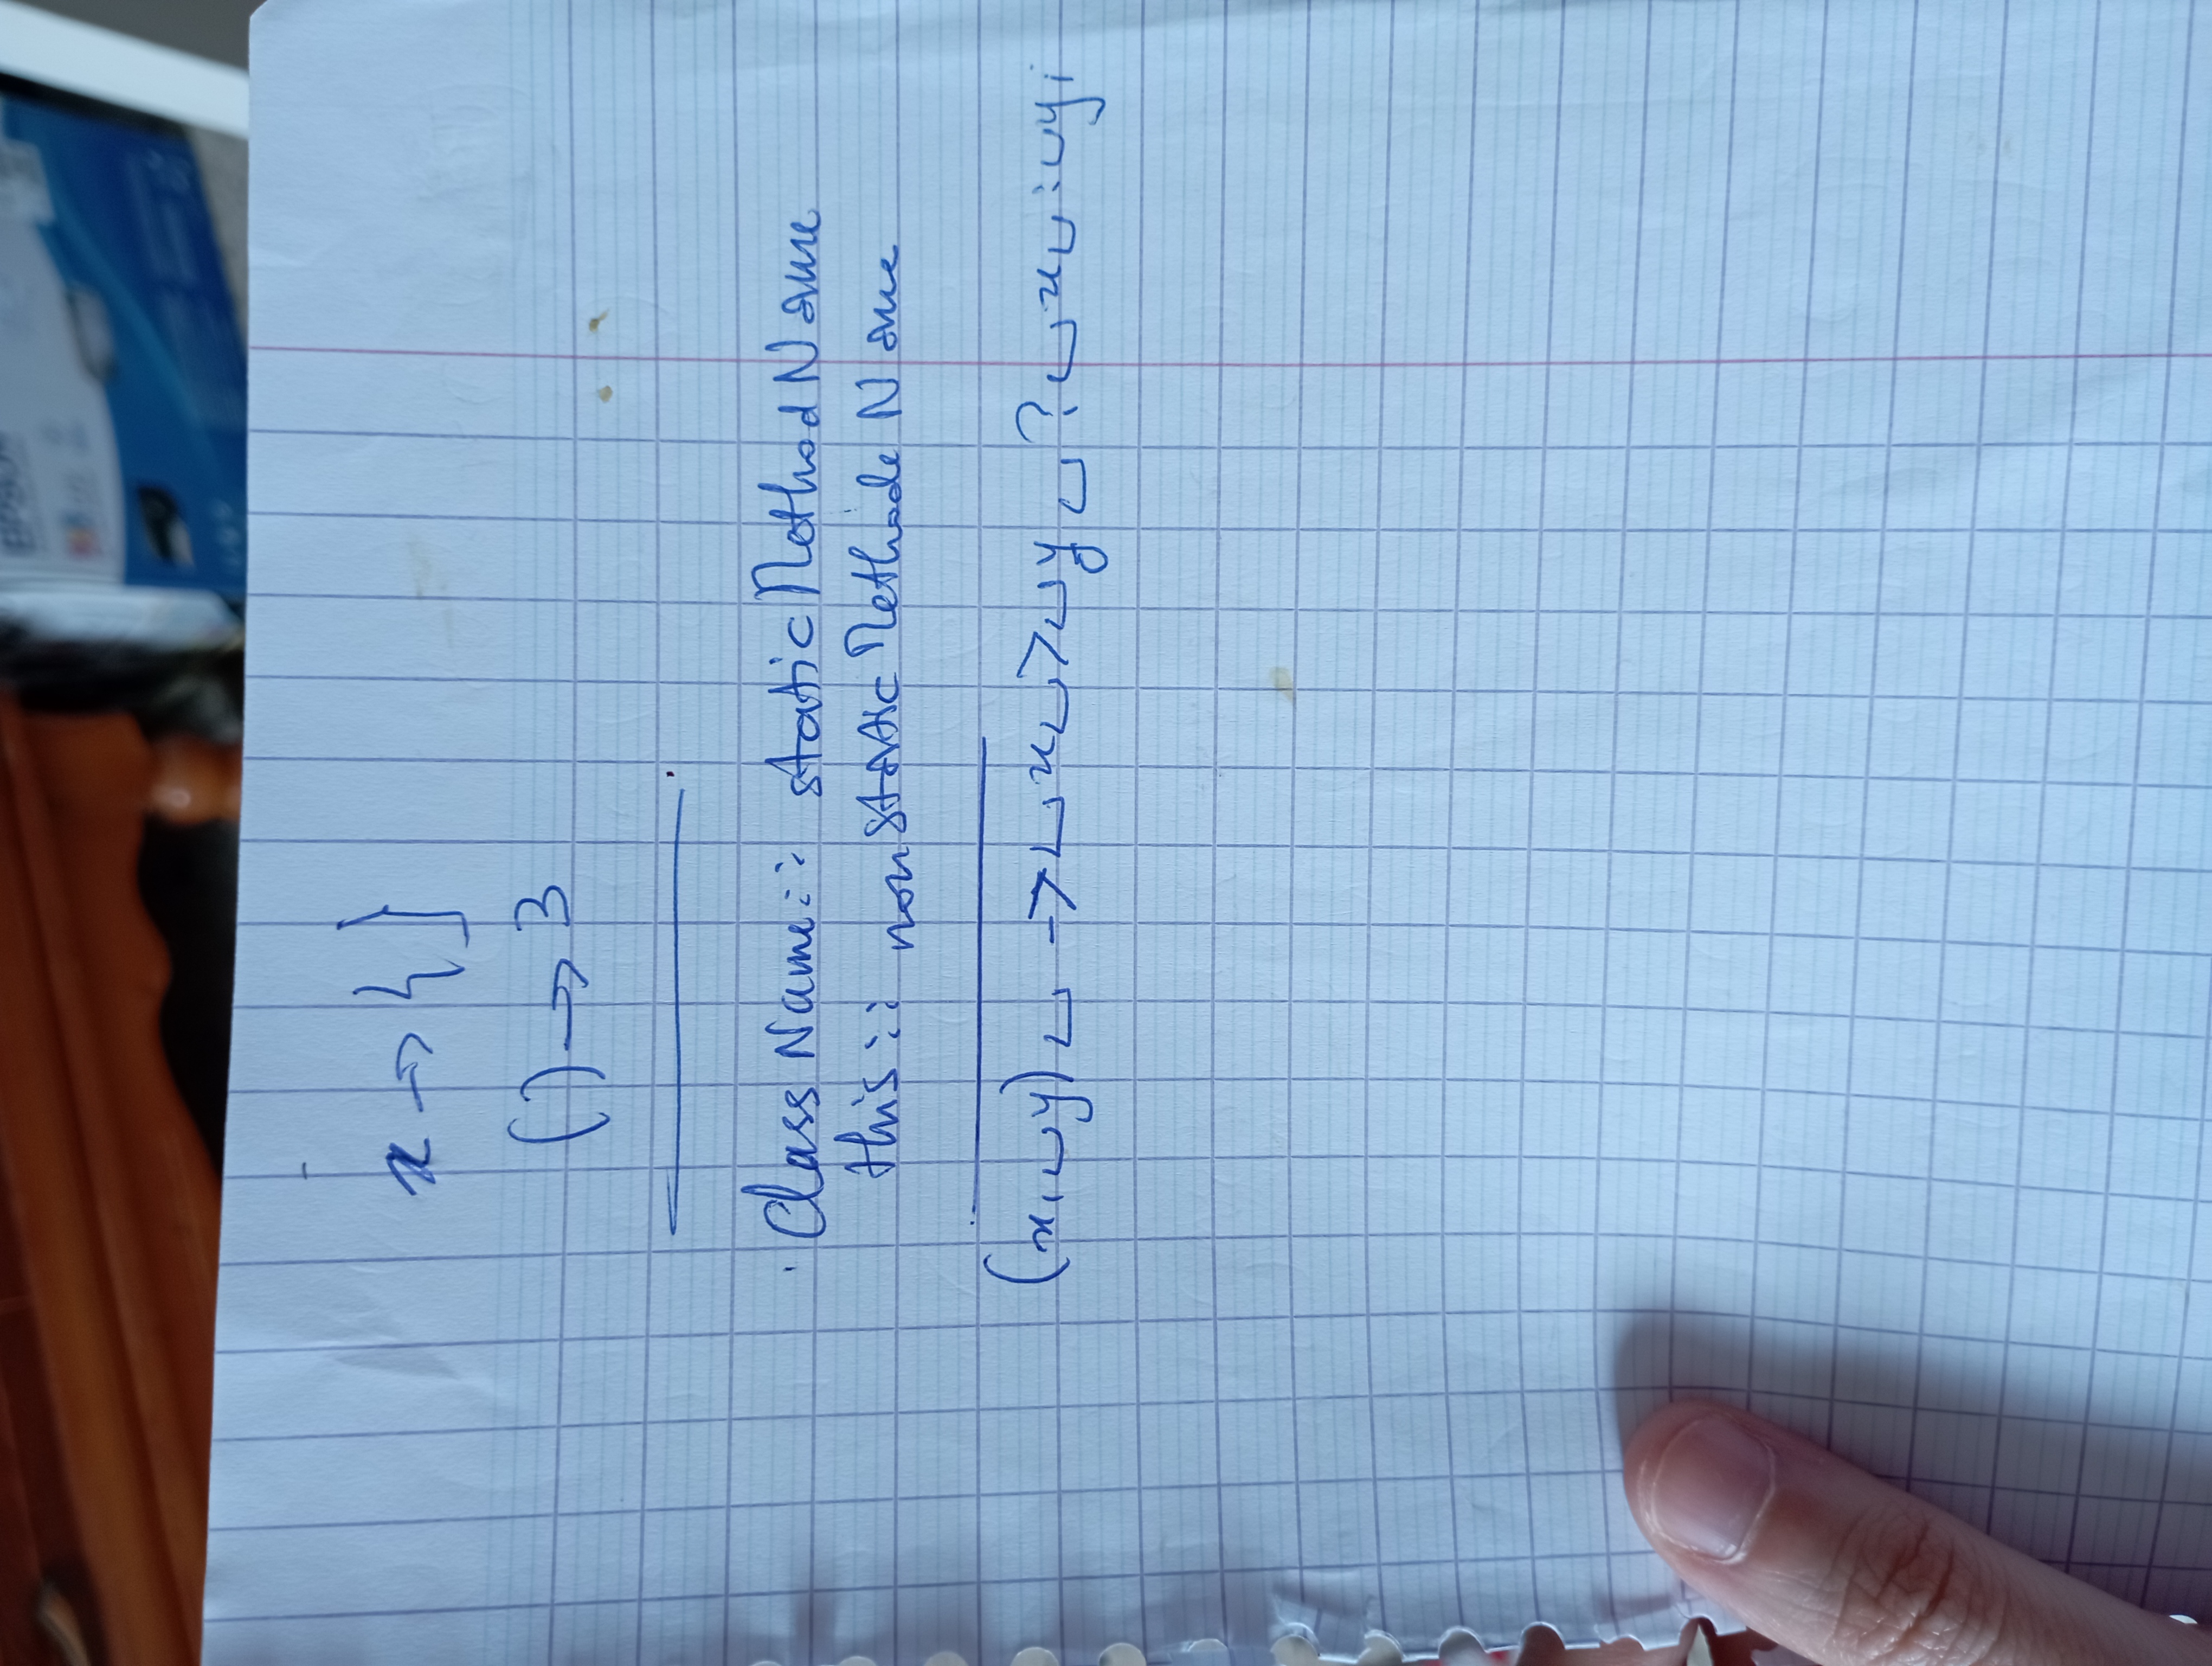 EPSON
x -> {}
() -> 3
ClassName:: staticMethodName
this:: nonstaticMethodeName
(x,␣y)␣->␣x␣>␣y␣?␣x␣:␣y;